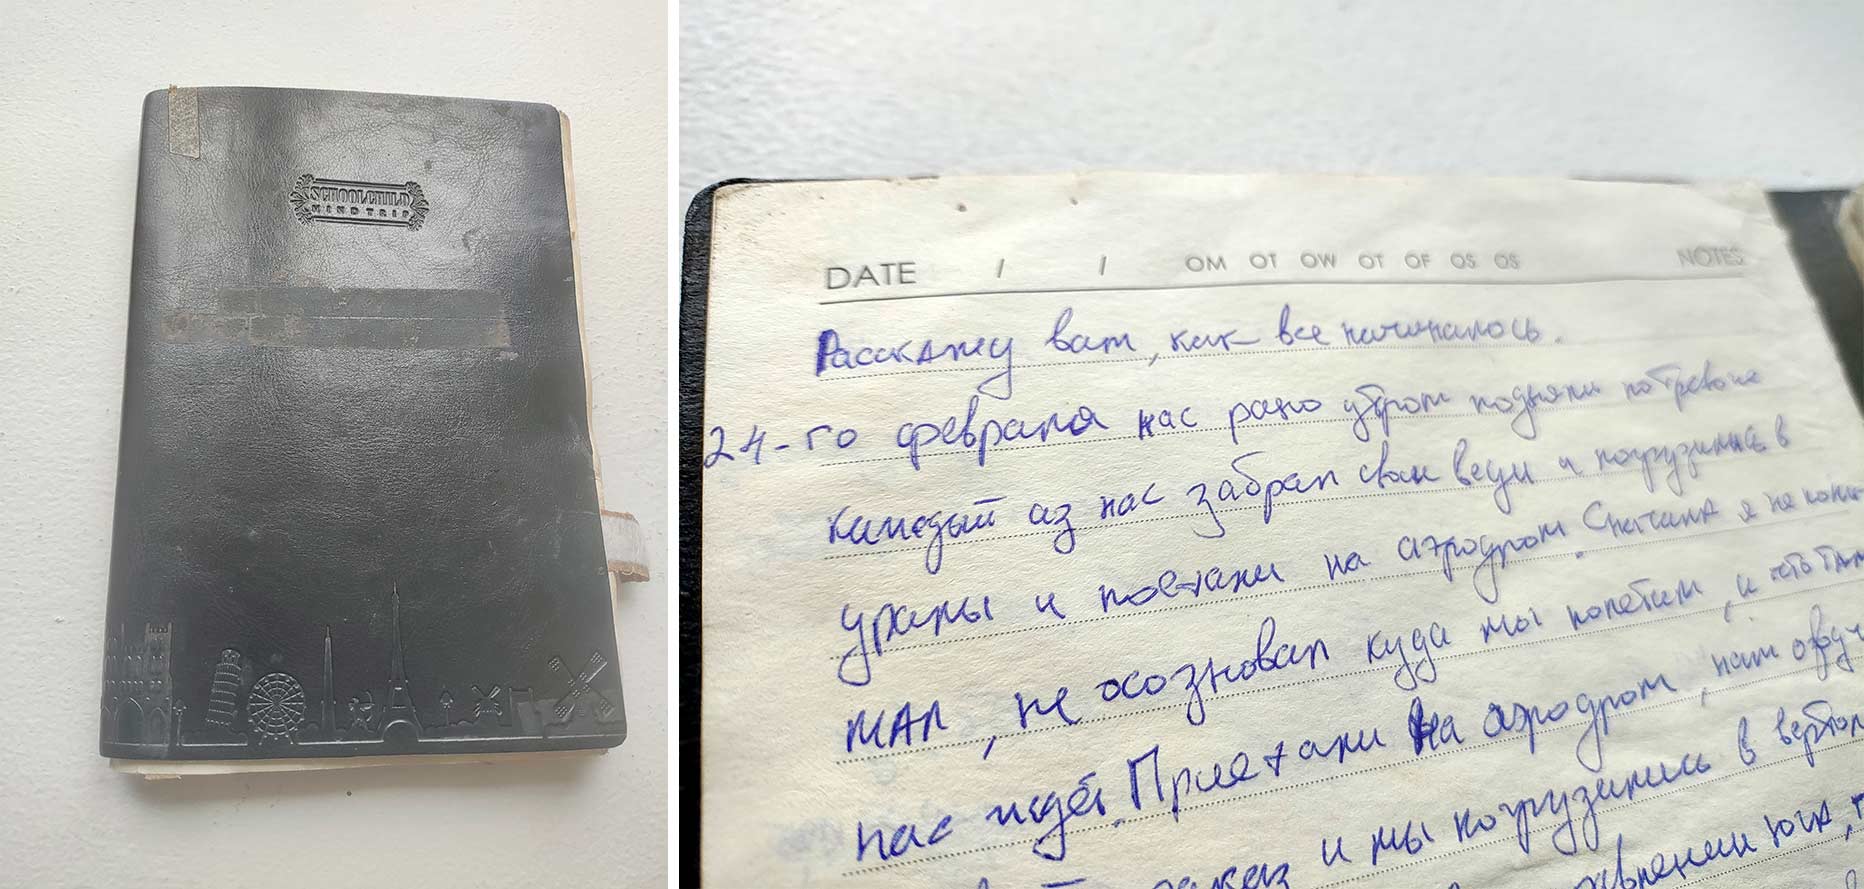 SCHOOLCHILD
MIND TRIP
DATE / / OM OT OW OT OF OS OS NOTES
Расскажу вам, как все начиналось.
24-го февраля нас рано утром подняли по тревоге
каждый из нас забрал свои вещи и погрузились в
уралы и поехали на аэродром. Сначала я не
мал, не осозновал куда мы полетим, и что там
нас ждёт. Приехали на аэродром, нам
и мы погрузились в